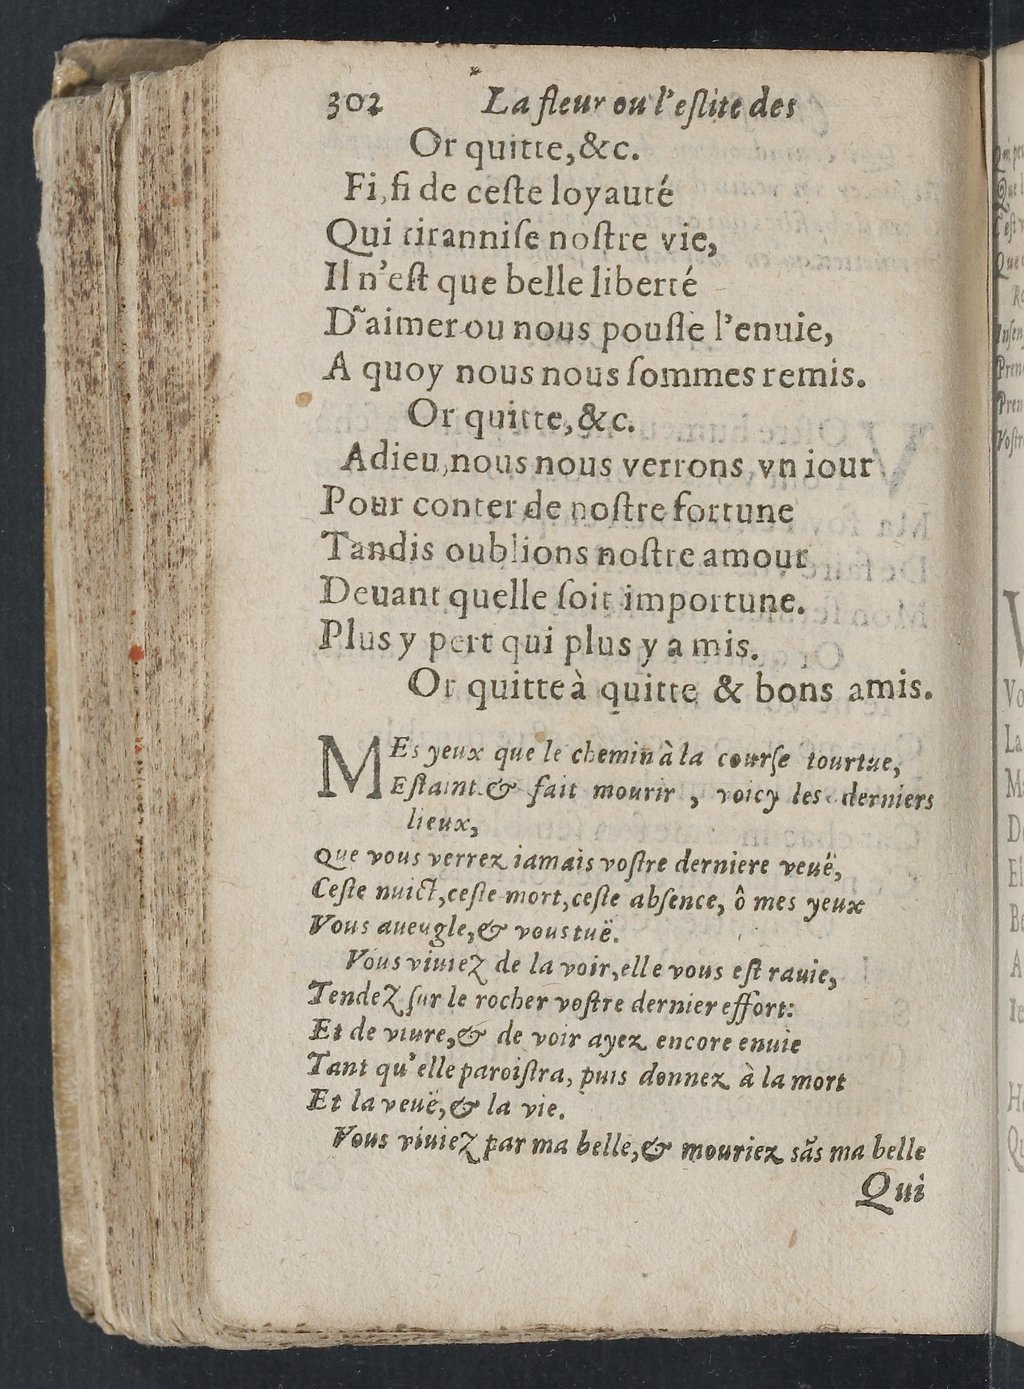 302 La fleur ou l'eſlite des
Or quitte, &c.
Fi, fi de ceſte loyauté
Qui tiranniſe noſtre vie,
Il n'eſt que belle liberté
D'aimer ou nous pouſſe l'enuie,
A quoy nous nous ſommes remis.
Or quitte, &c.
Adieu, nous nous verrons vn iour
Pour conter de noſtre fortune
Tandis oublions noſtre amour
Deuant quelle ſoit importune.
Plus y pert qui plus y a mis.
Or quitte à quitte & bons amis.
MEs yeux que le chemin à la courſe tourtue,
Eſtaint & fait mourir, voicy les derniers
lieux,
Que vous verrez iamais voſtre derniere veuë,
Ceſte nuict, ceſte mort, ceſte abſence, ô mes yeux
Vous aueugle, & vous tuë.
Vous viuiez de la voir, elle vous eſt rauie,
Tendez ſur le rocher voſtre dernier effort:
Et de viure, & de voir ayez encore enuie
Tant qu'elle paroiſtra, puis donnez à la mort
Et la veuë, & la vie.
Vous viuiez par ma belle, & mouriez sãs ma belle
Qui